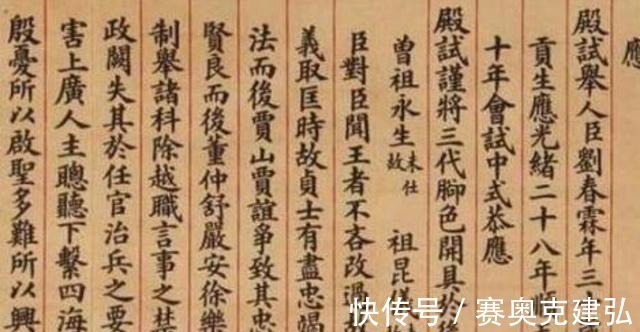 應
殿試舉人臣劉春霖年三
貢生應光緒二十八年
十年會試中式恭應
殿試謹將三代腳色開具
曾祖永生 未仕故 祖昆
臣對臣聞王者不吝改過
義取匡時故貞士有盡忠竭
法而後賈山賈誼爭致其忠
賢良而後董仲舒嚴安徐樂
制舉諸科除越職言事之禁
政闕失其於任官治兵之要
害上廣人主聰聽下繫四海
殷憂所以啟聖多難所以興
快传号 / 赛奥克建弘